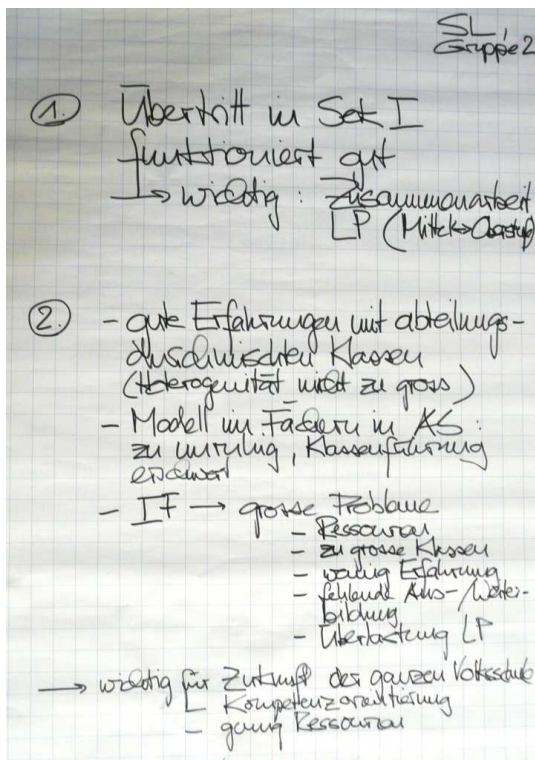 SL,
Gruppe 2
1. Übertritt in Sek I
funktioniert gut
→ wichtig: Zusammenarbeit
LP (Mittel↔Oberstufe)
2. - gute Erfahrungen mit abteilungs-
durchmischten Klassen
(Heterogenität nicht zu gross)
- Modell im Fächern in AS:
zu unruhig, Klassenführung
erschwert
- IF → grosse Probleme
- Ressourcen
- zu grosse Klassen
- wenig Erfahrung
- fehlende Aus-/Weiter-
bildung
- Überlastung LP
→ wichtig für Zukunft der ganzen Volksschule
- Kompetenzorientierung
- genug Ressourcen